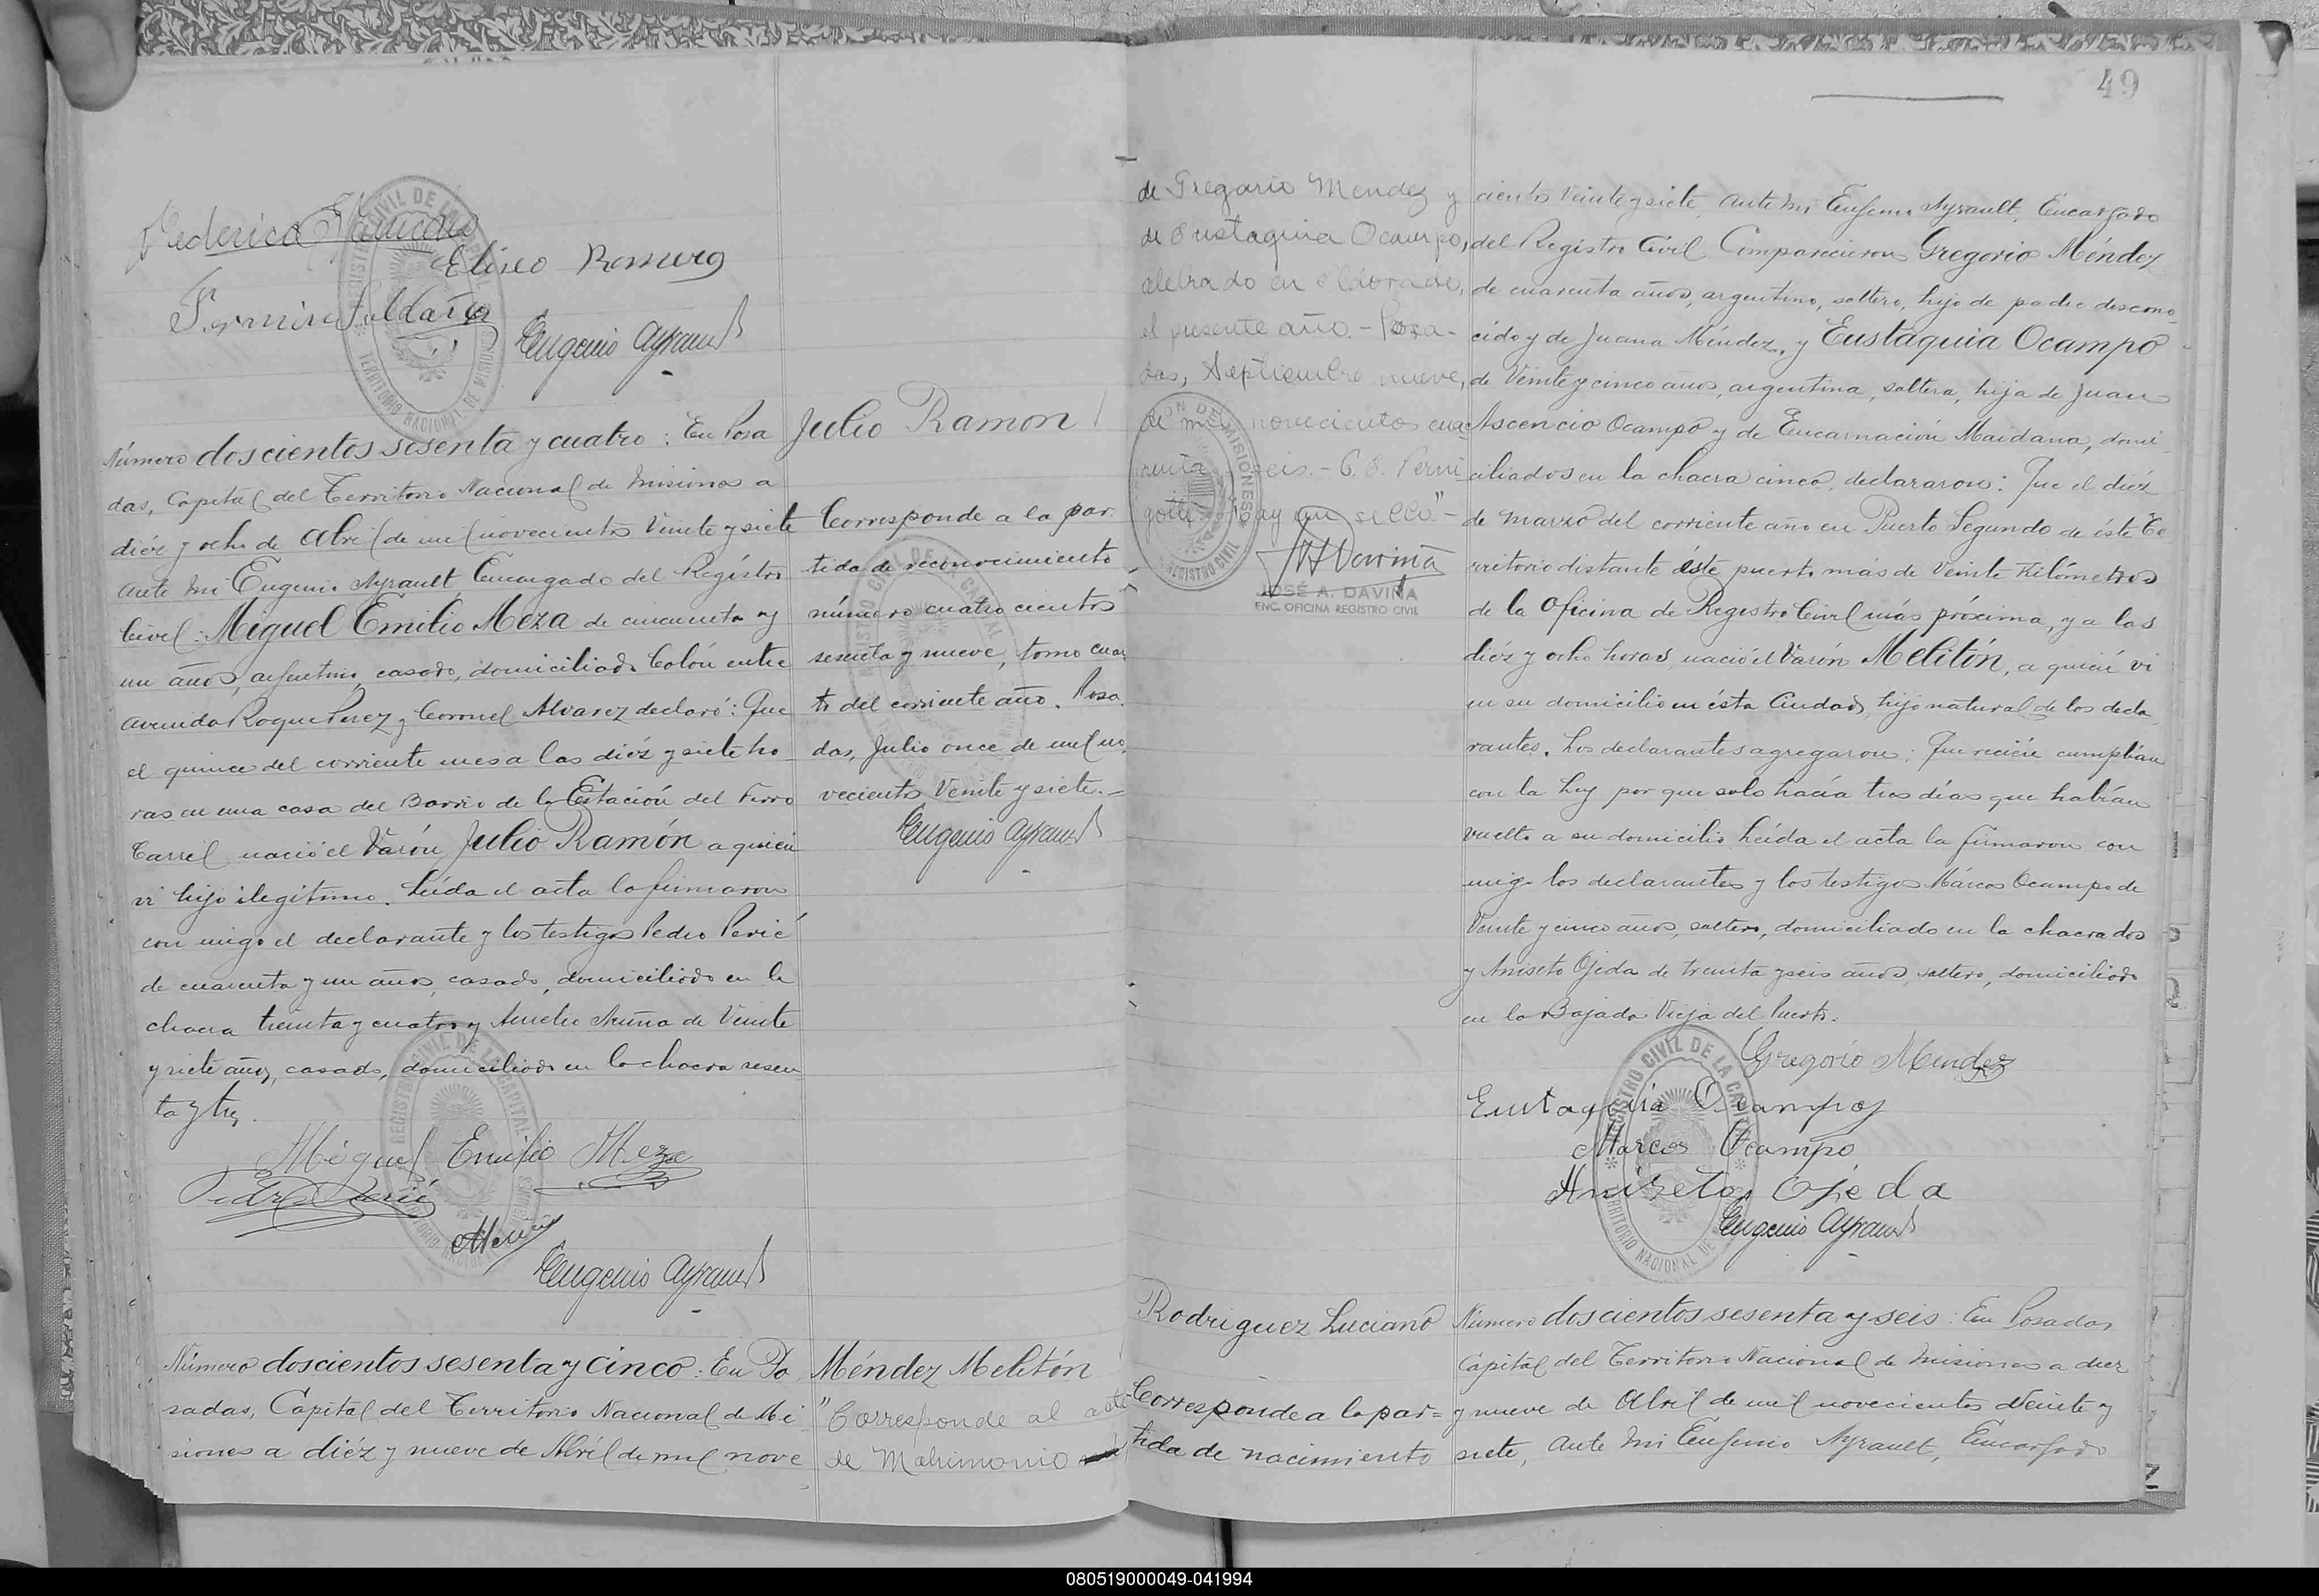 Eliseo Romero
Fermin Saldaña
Eugenio Ayrault
Número doscientos sesenta y cuatro: En Posa
das, Capital del Territorio Nacional de Misiones a
diéz y ocho de Abril de mil novecientos Veinte y siete
ante mi Eugenio Ayrault, Encargado del Registro
Civil: Miguel Emilio Meza de cincuenta y
un años, argentino, casado, domiciliado Colón entre
avenida Roque Pérez y Coronel Alvarez declaró: Que
el quince del corriente mes a las diéz y siete ho
ras en una casa del Barrio de la Estación del Ferro
Carril nació el Varón Julio Ramón a quien
vi hijo ilegítimo. Leída el acta la firmaron
con migo el declarante y los testigos Pedro Perié
de cuarenta y un años, casado, domiciliado en la
chacra treinta y cuatro y Aurelio Acuña de Veinte
y siete años, casado, domiciliado en la chacra sesen
ta y tres.
Miguel Emilio Meza
Pedro Perié
Eugenio Ayrault
Número doscientos sesenta y cinco: En Po
sadas, Capital del Territorio Nacional de Mi
siones a diéz y nueve de Abril de mil nove
Julio Ramon
Corresponde a la par
tida de reconocimiento
número cuatrocientos
sesenta y nueve, tomo cuar
to del corriente año. Posa
das, Julio once de mil no
vecientos Veinte y siete.-
Eugenio Ayrault
Méndez Melitón
"Corresponde al acta
de Matrimonio
49
de Gregorio Mendez y
de Eustaquia Ocampo,
celebrado en Eldorado,
el presente año.- Posa-
das, Septiembre nueve,
de mil novecientos cua
renta y seis.- C. E. Perni
gotti. Hay un sello."-
JOSÉ A. DAVIÑA
ENC. OFICINA REGISTRO CIVIL
Rodriguez Luciano
Corresponde a la par=
tida de nacimiento
cientos Veinte y siete, ante mi Eugenio Ayrault, Encargado
del Registro Civil Comparecieron Gregorio Méndez
de cuarenta años, argentino, soltero, hijo de padre descono
cido y de Juana Méndez, y Eustaquia Ocampo
de Veinte y cinco años, argentina, soltera, hija de Juan
Ascencio Ocampo y de Encarnación Maidana, domi
ciliados en la chacra cinco, declararon: Que el diéz
de marzo del corriente año en Puerto Segundo de éste Te
rritorio distante éste puerto más de Veinte Kilómetros
de la Oficina de Registro Civil más próxima, y a las
diéz y ocho horas, nació el Varón Melitón, a quien vi
en su domicilio en ésta Ciudad, hijo natural de los decla
rantes. Los declarantes agregaron: Que recién cumplían
con la Ley por que solo hacía tres días que habían
vuelto a su domicilio. Leída el acta la firmaron con
migo los declarantes y los testigos Márcos Ocampo de
Veinte y cinco años, soltero, domiciliado en la chacra dos
y Aniseto Ojeda de treinta y seis años, soltero, domiciliado
en la Bajada Vieja del Puerto.
Gregorio Mendez
Eustaquia Ocampo
Marcos Ocampo
Aniseto Ojeda
Eugenio Ayrault
Número doscientos sesenta y seis: En Posadas
Capital del Territorio Nacional de Misiones a diez
y nueve de Abril de mil novecientos Veinte y
siete, ante mi Eugenio Ayrault, Encargado
080519000049-041994